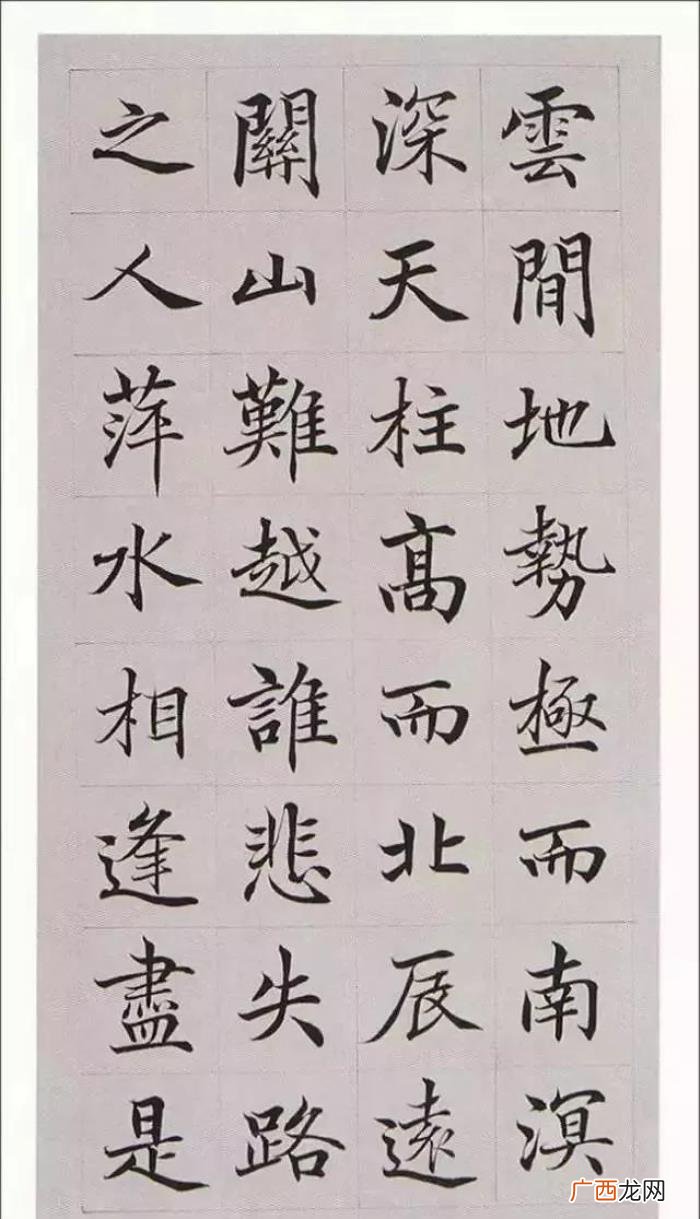 雲間地勢極而南溟
深天柱髙而北辰遠
關山難越誰悲失路
之人萍水相逢盡是
广西龙网